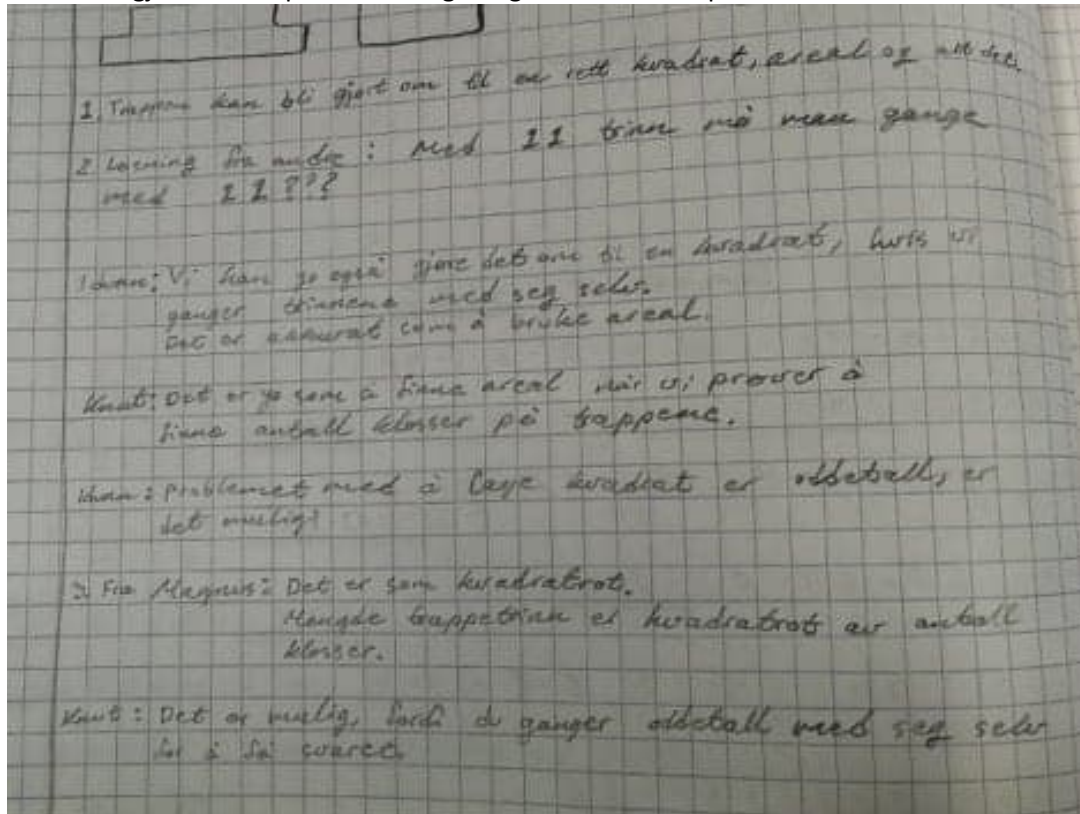 1. Trappene kan bli gjort om til en rett kvadrat, areal og alt det.
2 Løsning fra andre: Med 11 trinn må man gange
med 11???
Idunn: Vi kan jo også gjøre det om til en kvadrat, hvis vi
ganger trinnene med seg selv.
Det er akkurat som å bruke areal.
Knut: Det er jo som å finne areal når vi prøver å
finne antall klosser på trappene.
problemet med å lage kvadrat er oddetall, er
det mulig?
3 Fra Magnus: Det er som kvadratrot.
Mengde trappetrinn er kvadratrot av antall
klosser.
Knut: Det er mulig, fordi du ganger oddetall med seg selv
for å få svaret.